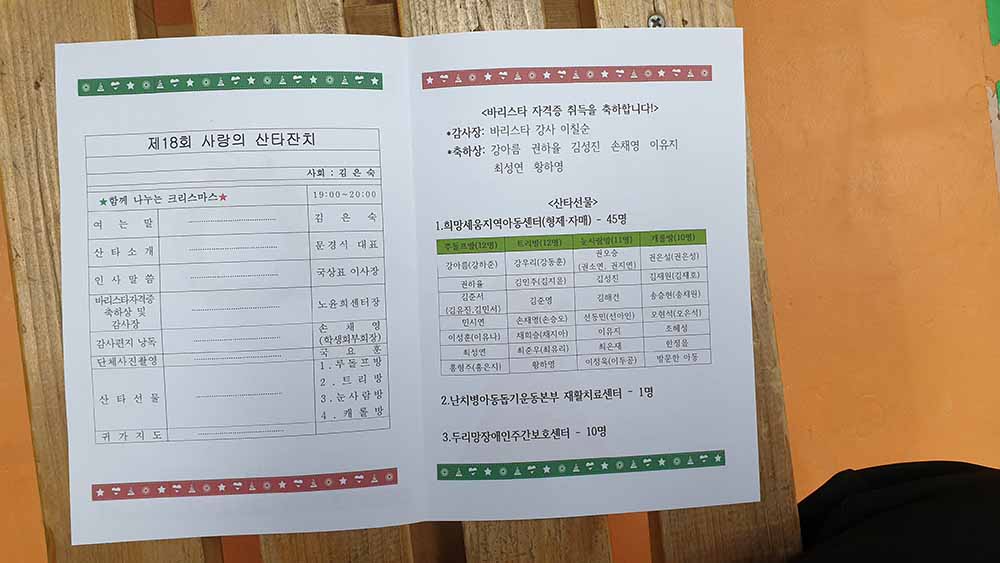 제18회 사랑의 산타잔치
사회 : 김 은 숙
★함께 나누는 크리스마스★ 19:00~20:00
여 는 말 김 은 숙
산 타 소 개 문경식 대표
인 사 말 씀 국상표 이사장
바리스타자격증
축하상 및
감사장
노윤희센터장
감사편지 낭독
손 채 영
(학생회부회장)
국 요 훈
단체사진촬영
산 타 선 물
1.루돌프방
2. 트리방
3.눈사람방
4. 캐롤방
귀 가 지 도
<바리스타 자격증 취득을 축하합니다!>
•감사장: 바리스타 강사 이칠순
•축하상: 강아름 권하율 김성진 손채영 이유지
최성연 황하영
<산타선물>
1.희망세움지역아동센터(형제·자매) - 45명
루돌프방(12명) 트리방(12명) 눈사람방(11명) 캐롤방(10명)
강아름(강하준) 강우리(강동훈) 권오승 (권소연, 권지연) 권은설(권은성)
권하율 김민주(김지문) 김성진 김재원(김재호)
김준서 (김유진,김민서) 김준영 김해건 송승현(송재원)
민시연 손채영(손승오) 선동민(선아인) 오현석(오은석)
이성훈(이유나) 채희승(채지아) 이유지 조혜성
최성연 최준우(최유리) 최은재 한정음
홍형주(홍은지) 황하영 이정욱(이두공) 방문한 아동
2.난치병아동돕기운동본부 재활치료센터 - 1명
3.두리망장애인주간보호센터 - 10명